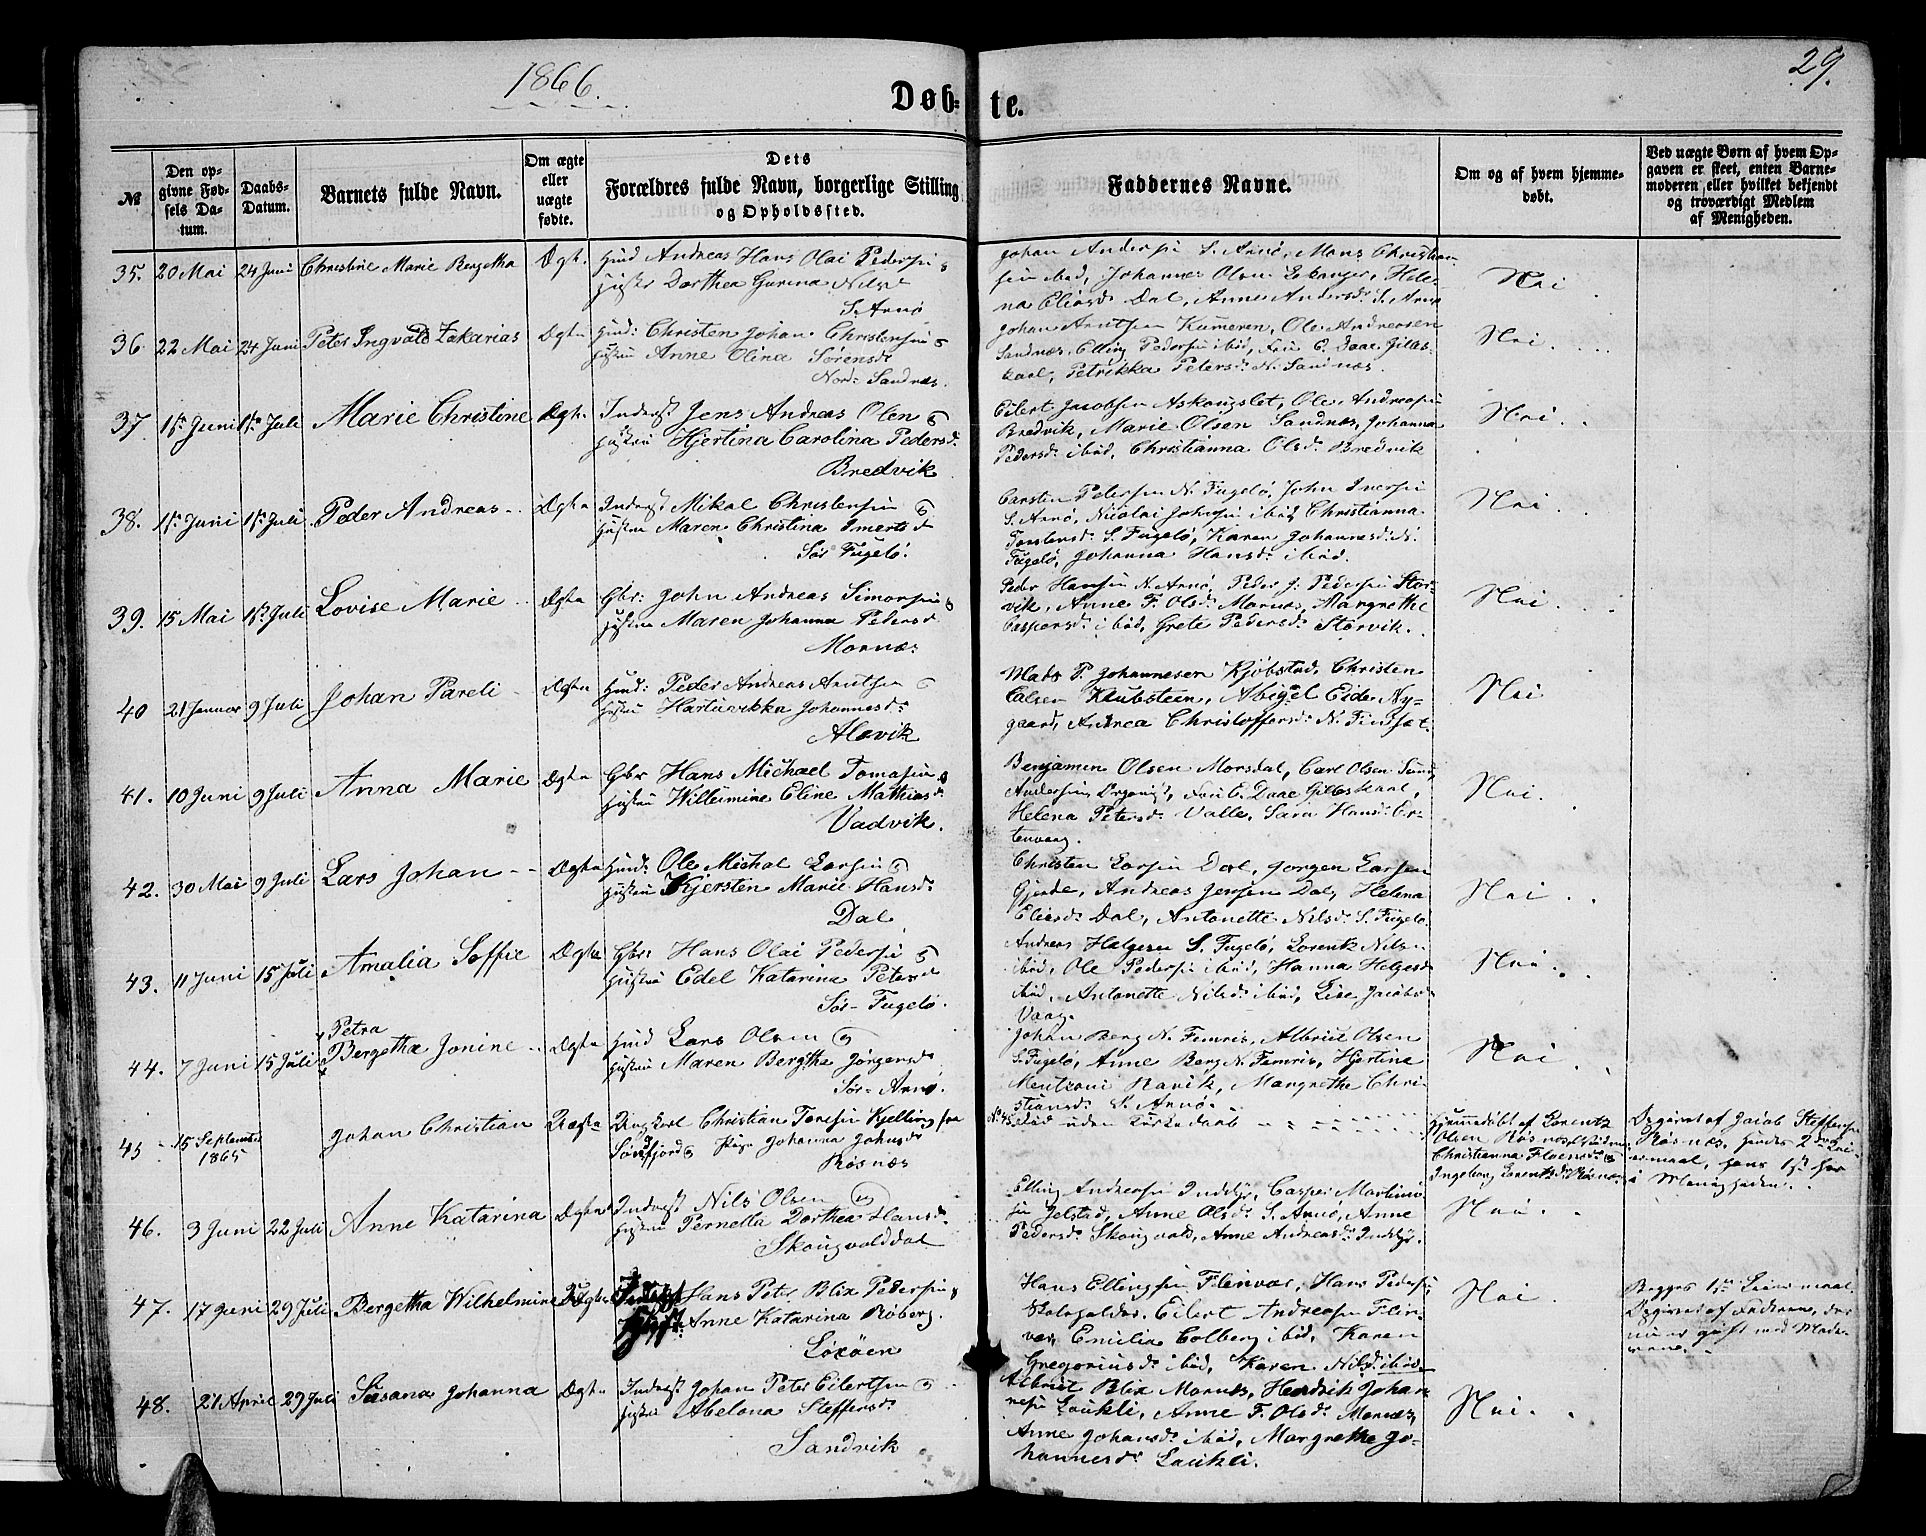 1866.
29.
Døb-
te.
№
Den op-
givne Fød-
sels Da-
tum.
Daabs-
Datum.
Barnets fulde Navn.
Om ægte
eller
uægte
fødte.
Dets
Forældres fulde Navn, borgerlige Stilling
og Opholdssted.
Faddernes Navne.
Om og af hvem hjemme-
døbt.
Ved uægte Børn af hvem Op-
gaven er skeet, enten Barne-
moderen eller hvilket bekjendt
og troværdigt Medlem
af Menigheden.
35. 20 Mai 24 Juni Christine Marie Bergetha Ægt.
Andreas Hans Olai Pedersen
Dorthea Gurina Nilsd
S. Arnø
Johan Andersen S. Arnø, Mons Christian-
sen ibid, Johannes Olsen Lekanger, Hele-
na Eliasd. Dal, Anne Andersd. S. Arnø
Nei
36. 22 Mai 24 Juni Peter Ingvald Zakarias Ægte
Christen Johan Christensen
Hustru Anne Olina Sørensd
Nord-Sandnæs.
Johan Arntsen Kumeren, Ole Andreasen
Sandnæs, Elling Pedersen ibid, Fru C. Daae Gilles-
kaal, Petrikka Petersd. N. Sandnæs.
Nei.
37. 15 Juni 15 Juli Marie Christine Ægte
Inderst Jens Andreas Olen
Hustru Hjertina Carolina Pedersd.
Bredvik
Eilert Jacobsen Askougslet, Ole Andreasen
Bredvik, Marie Olsen Sandnæs, Johanna
Pedersd. ibid, Christianna Olsd. Bredvik
Nei.
38. 15 Juni 15 Juli Peder Andreas Ægte
Inderst Mikal Christensen
Hustru Maren Christina Imertsd
Sør Fugelø.
Carsten Petersen N. Fugelø, John Iversen
S. Arnø, Nicolai Johnsen ibid, Christianna
Torstensd. S. Fugelø, Karen Johannesd. N.
Fugelø, Johanna Hansd. ibid.
Nei.
39. 15 Mai 15 Juli Lovise Marie Ægte
Gbr: John Andreas Simonsen
Hustru Maren Johanna Pedersd
Mornæs
Peder Hansen N. Arnø, Peder J. Pedersen Stor-
vik, Anne F. Olsd. Mornæs, Margrethe
Caspersd. ibid, Grete Pedersd. Storvik.
Nei.
40 21 Januar 9 Juli Johan Pareli Ægte
Peder Andreas Arntsen
Hustru Hartvikka Johannesd.
Alevik
Mads P. Johannesen Kjøbstad, Christen
Calsen Klubsteen, Abigel Eide Ny-
gaard, Andrea Christoffersd. N. Finset.
Nei
41. 10 Juni 9 Juli Anna Marie Ægte
Gbr Hans Michael Tomasen
Hustru Willumine Eline Mathiasd.
Vadvik.
Benjamin Olsen Morsdal, Carl Olsen Sund,
Andersen Organist, Fru C. Daae Gilleskaal,
Helena Petersd. Valle, Sara Hansd. Er-
tenvaag.
Nei.
42. 30 Mai 9 Juli Lars Johan Ægte
Ole Michal Larsen
Hustru Kjersten Marie Hansd.
Dal
Christen Larsen Dal, Jørgen Larsen
Gjerde, Andreas Jensen Dal, Helena
Eliasd. Dal, Antonette Nilsd. S. Fugelø.
Nei.
43. 11 Juni 15 Juli Amalia Soffie Ægte
Gbr: Hans Olai Pedersen
Hustru Edel Katarina Petersd
Sør-Fugelø.
Andreas Helgesen S. Fugelø, Lorentz Nils-
ibid, Ole Pedersen ibid, Hanna Helgesd
ibid, Antonette Nilsd. ibid, Lise Jacobs-
Vaag.
Nei.
44. 7 Juni 15 Juli Petra
Bergetha Jonine Ægte
Lars Olsen
Hustru Maren Bergthe Jørgensd
Sør-Arnø.
Johan Berg N. Femris, Albriet Olsen
S. Fugelø, Anne Berg N. Femris, Hjertine
Mentzoni Navik, Margrethe Chri-
stiansd. S. Arnø.
Nei
45 15 September
1865 Johan Christian Uægte
Ungkarl Christian Toresen Kjelling fra
Sørfjord Pige Johanna Johnsd
Røsnæs
død uden Kirkedaab
Hjemmedøbt af Lorentz
Olsen Røsnæs,
Christianna
Ingeborg Lorentzd. Røsnæs.
Opgivet af Jacob Steffensen
Røsnæs, hendes 2det Lei-
ermaal, hans 1ste her
i Menigheden.
46. 3 Juni 22 Juli Anne Katarina Ægte
Inderst Nils Olsen
Hustru Pernella Dorthea Hansd.
Skougvolddal
Elling Andreasen Inddyr, Casper Martini-
sen Jelstad, Anne Olsd. S. Arnø, Anne
Pedersd. Skougvold, Anne Andreasd. Inddyr.
Nei.
47. 17 Juni 29 Juli Bergetha Wilhelmine Uægte
Hans Peter Blix Pedersen
Anne Katarina Røberg.
Løxøen
Hans Ellingsen Flinvær, Hans Pedersen
Eilert Andreasen Flin-
vær, Emilia Colberg ibid, Karen
Gregoriusd. ibid, Karen Nilsd. ibid
Nei
Begges 1ste Leiermaal.
Opgivet af Faderen, der
nu er gift med Mode-
ren.
48. 21 April 29 Juli Susana Johanna Ægte
Inderst Johan Peter Eilertsen
Hustru Abelona Steffensd.
Sandvik
Albriet Blix Mornæs, Hendrik Johan-
nesen Laukli, Anne F. Olsd. Mornæs,
Anne Johansd. ibid, Margrethe Jo-
hannesd. Laukli.
Nei.